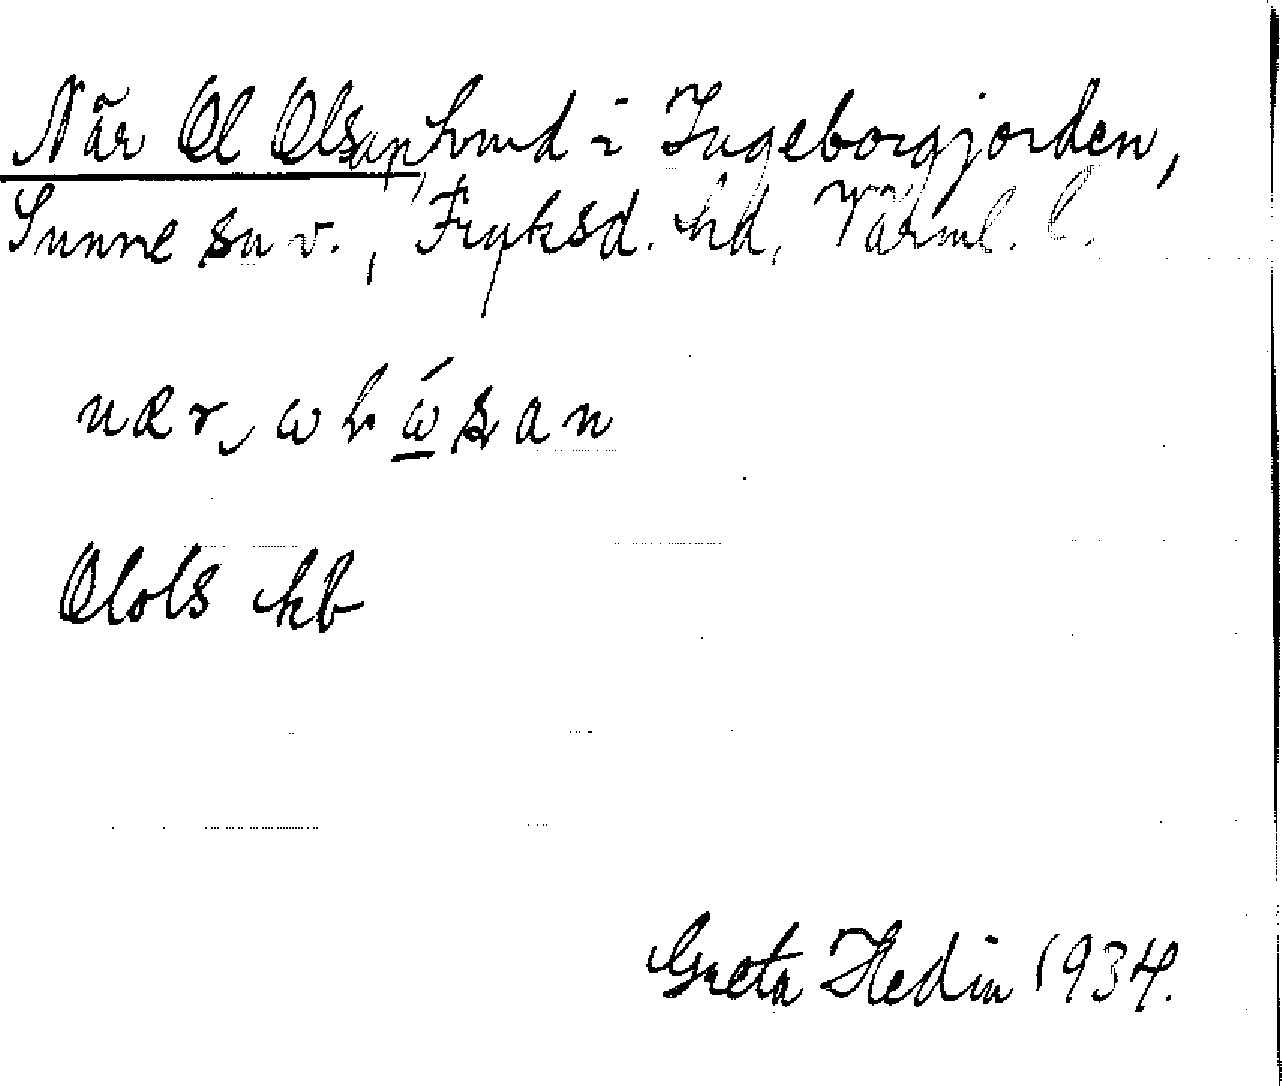 När Ol Olsan, hmd i Ingeborgjorden,
Sunne sn v., Fryksd. hd, Värml. l.
Olols hb
Greta Hedin 1934.